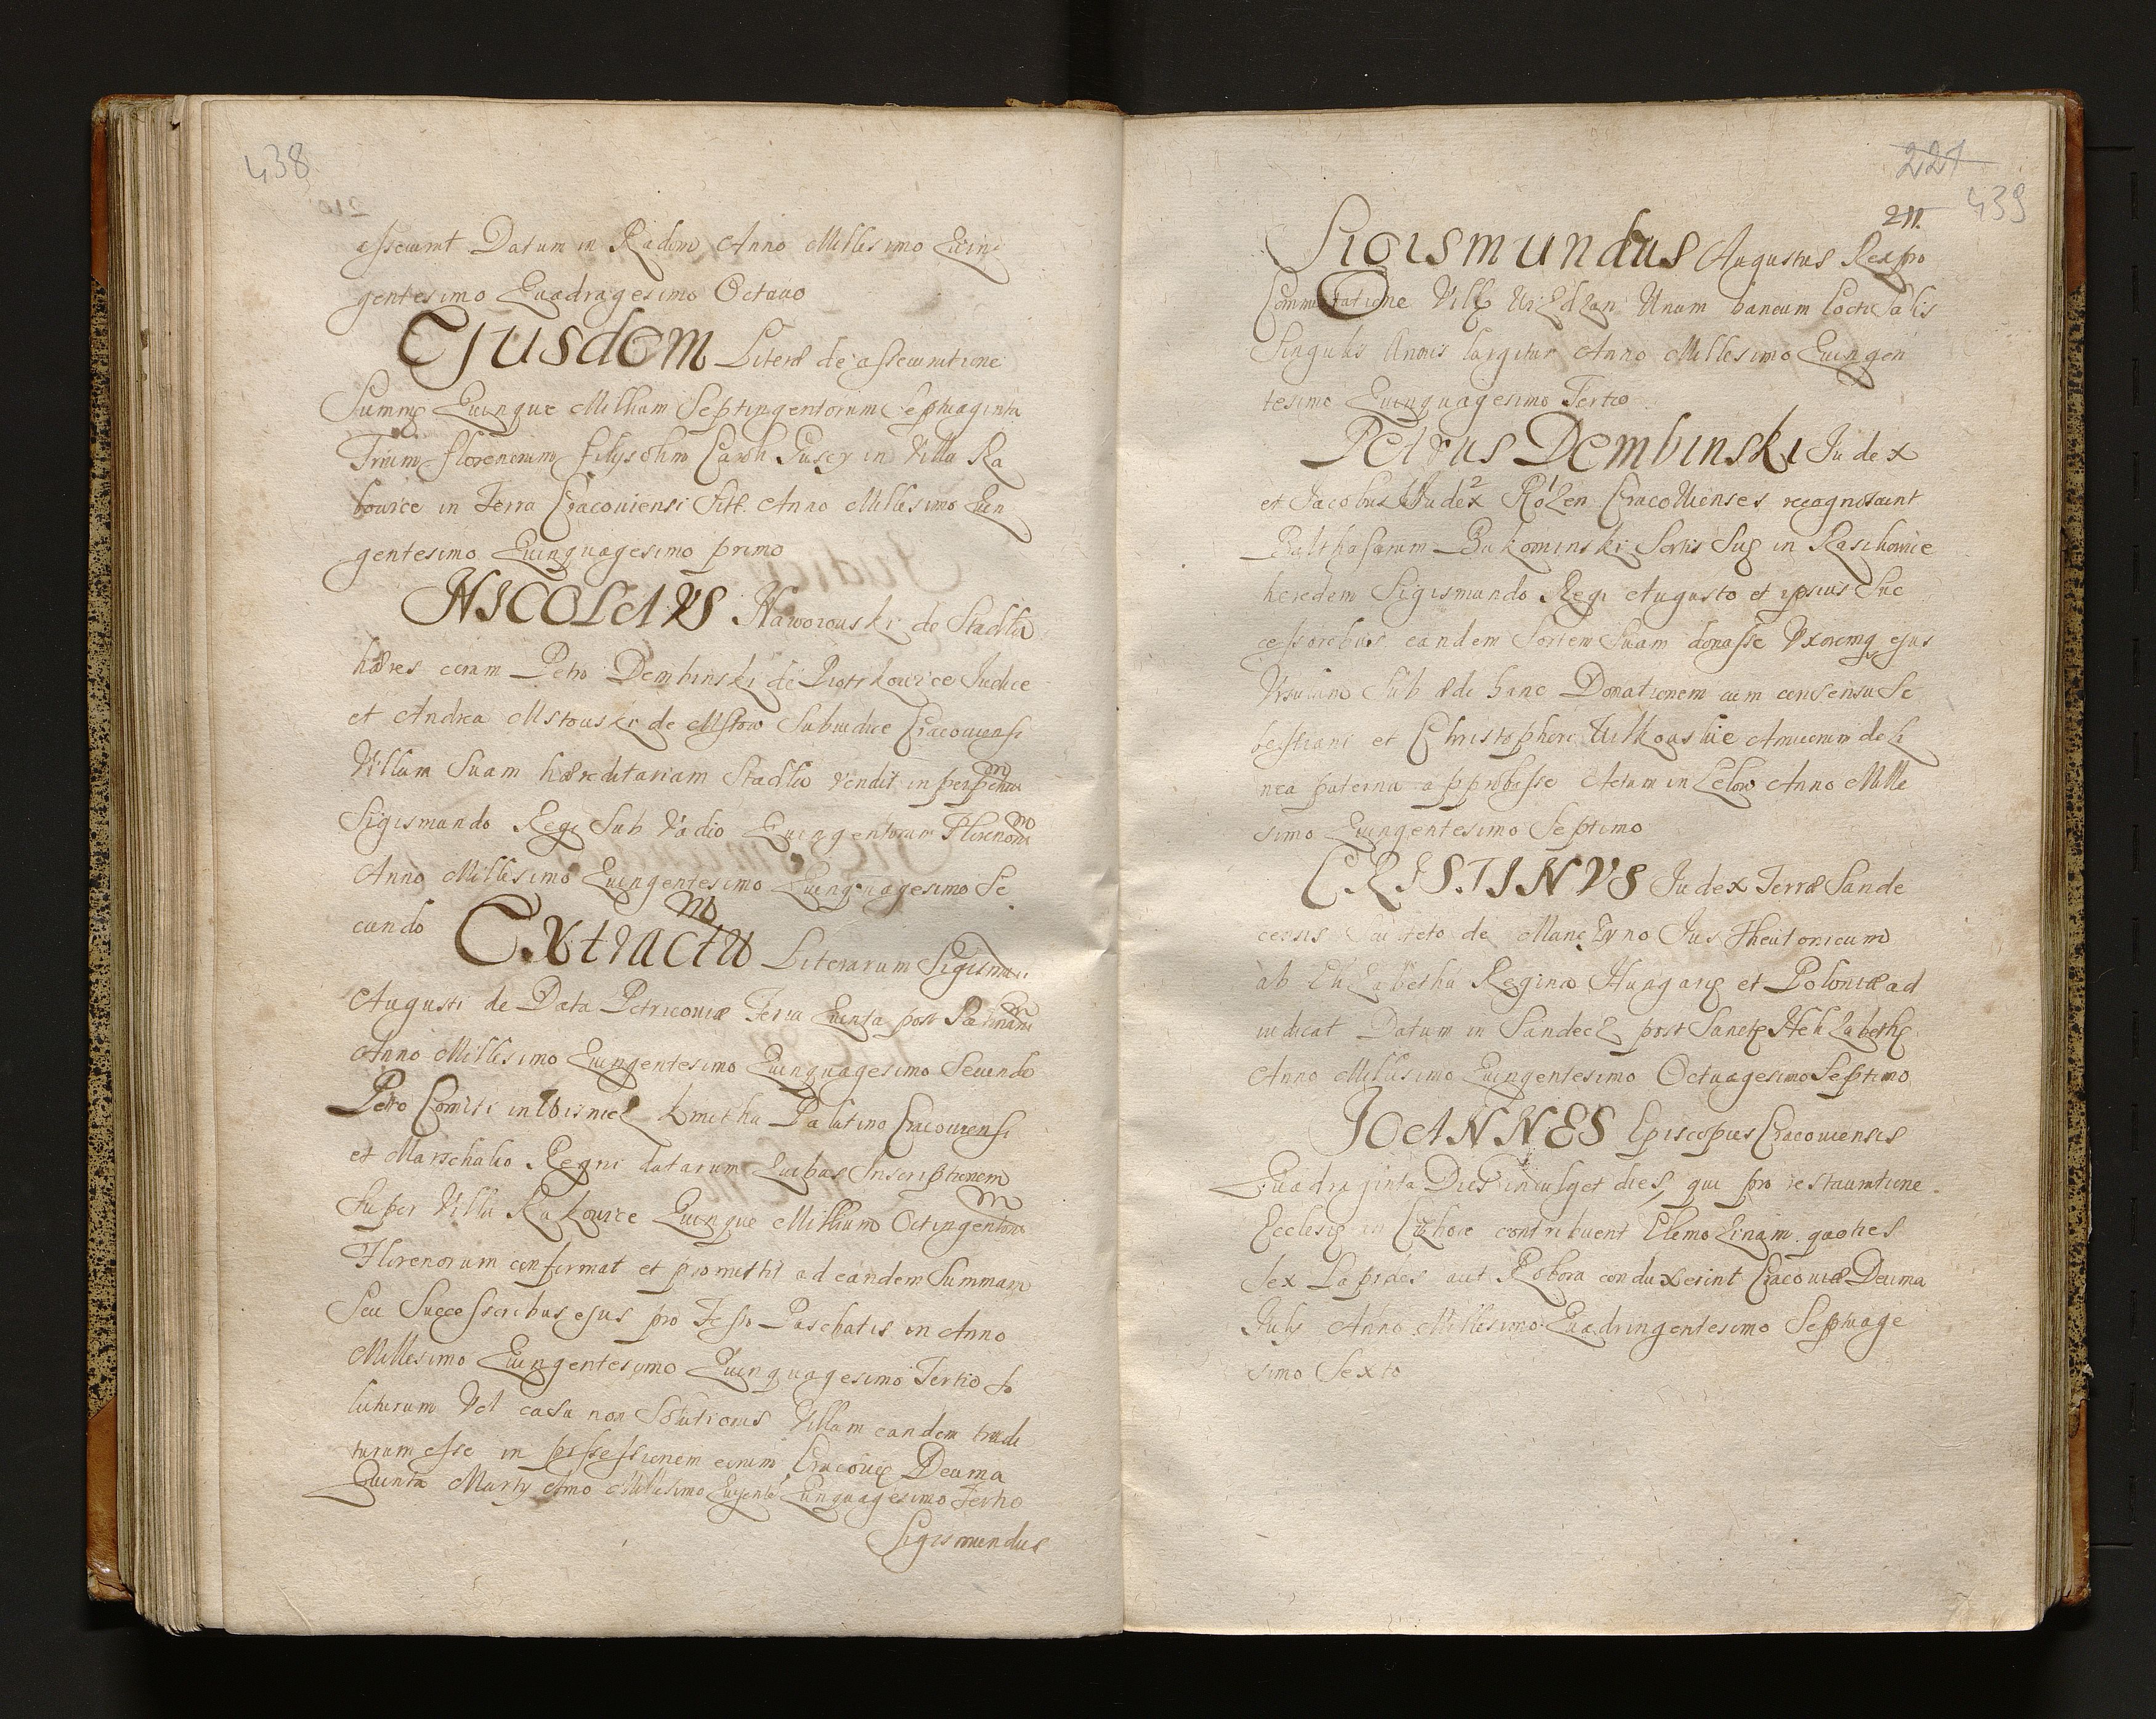 438
assecurat Datum in Radom Anno Millesimo Quin
gentesimo Quadragesimo Octauo
Ejusdem Literæ de assecuratione
Summę Quinque Millium Septingentorum Septuaginta
Trium florenorum filijs olim Caroli in Villa Ra
kowice in Terra Cracouiensi Anno Millesimo Quin
gentesimo Quinquagesimo primo
NICOLAVS Naworouski de Stadlà
hæres coram Petro Dembinski de Piotrkowice Judice
et Andrea Mstouski de Mstow Subiudice Cracouiensi
Villam Suam hæreditariam Stadla vendit in perpetuum
Sigismundo Regi Sub Vadio Quingentorum Florenorum
Anno Millesimo Quingentesimo Quinquagesimo Se
cundo Extractum Literarum Sigismundi
Augusti de Data Petricouiæ Feria Quinta post
Anno Millesimo Quingentesimo Quinquagesimo Secundo
Petro Comiti in Wisnicz Kmitha Palatino Cracouiensi
et Marschalco Regni datarum Quibus Inscriptionem
Super Villa Rakowice Quinque Millium Octingentorum
Florenorum confirmat et promittit ad eandem Summam
Seu Successoribus ejus pro Festo Paschatis in Anno
Millesimo Quingentesimo Quinquagesimo Tertio so
luturum Vel casu non Solutionis Villam eandem tradi
turum esse in possessionem eorum Cracouię Decima
Quinta Martij Anno Millesimo Quinquagesimo Tertio
Sigismundus
221
439
211.
Sigismundus Augustus Rex pro
Commutatione Villę Unum bancum Salis
Singulis Annis largitur Anno Millesimo Quingen
tesimo Quinquagesimo Tertio
Petrus Dembinski Judex
et Jacobus Judex 2 Rozen 1 Cracouienses recognoscunt
Balthasarum Bukominski Sortis Suę in Rasikowice
heredem Sigismundo Regi Augusto et ipsius Suc
cessoribus eandem Sortem Suam donasse Vxoremq ejus
Vrsulam Sub hanc Donationem cum consensu Se
bastiani et Christophori Amicorum de li
nea paterna approbasse Actum in Lelow Anno Mille
simo Quingentesimo Septimo
CRISTINVS Judex Terræ Sande
censis de Jus Theutonicum
ab Elizabetha Regina Hungarię et Poloniæ ad
iudicat Datum in Sandecz post Sanctę Helizabethę
Anno Millesimo Quingentesimo Octuagesimo Septimo
JOANNES Episcopus Cracouiensis
Quadraginta Dies indulget dies, qui pro restauratione
Ecclesię in contribuent Elemozinam quoties
Sex Lapides aut Robora conduxerint Cracouiæ Decima
Julij Anno Millesimo Quadringentesimo Septuage
simo Sexto